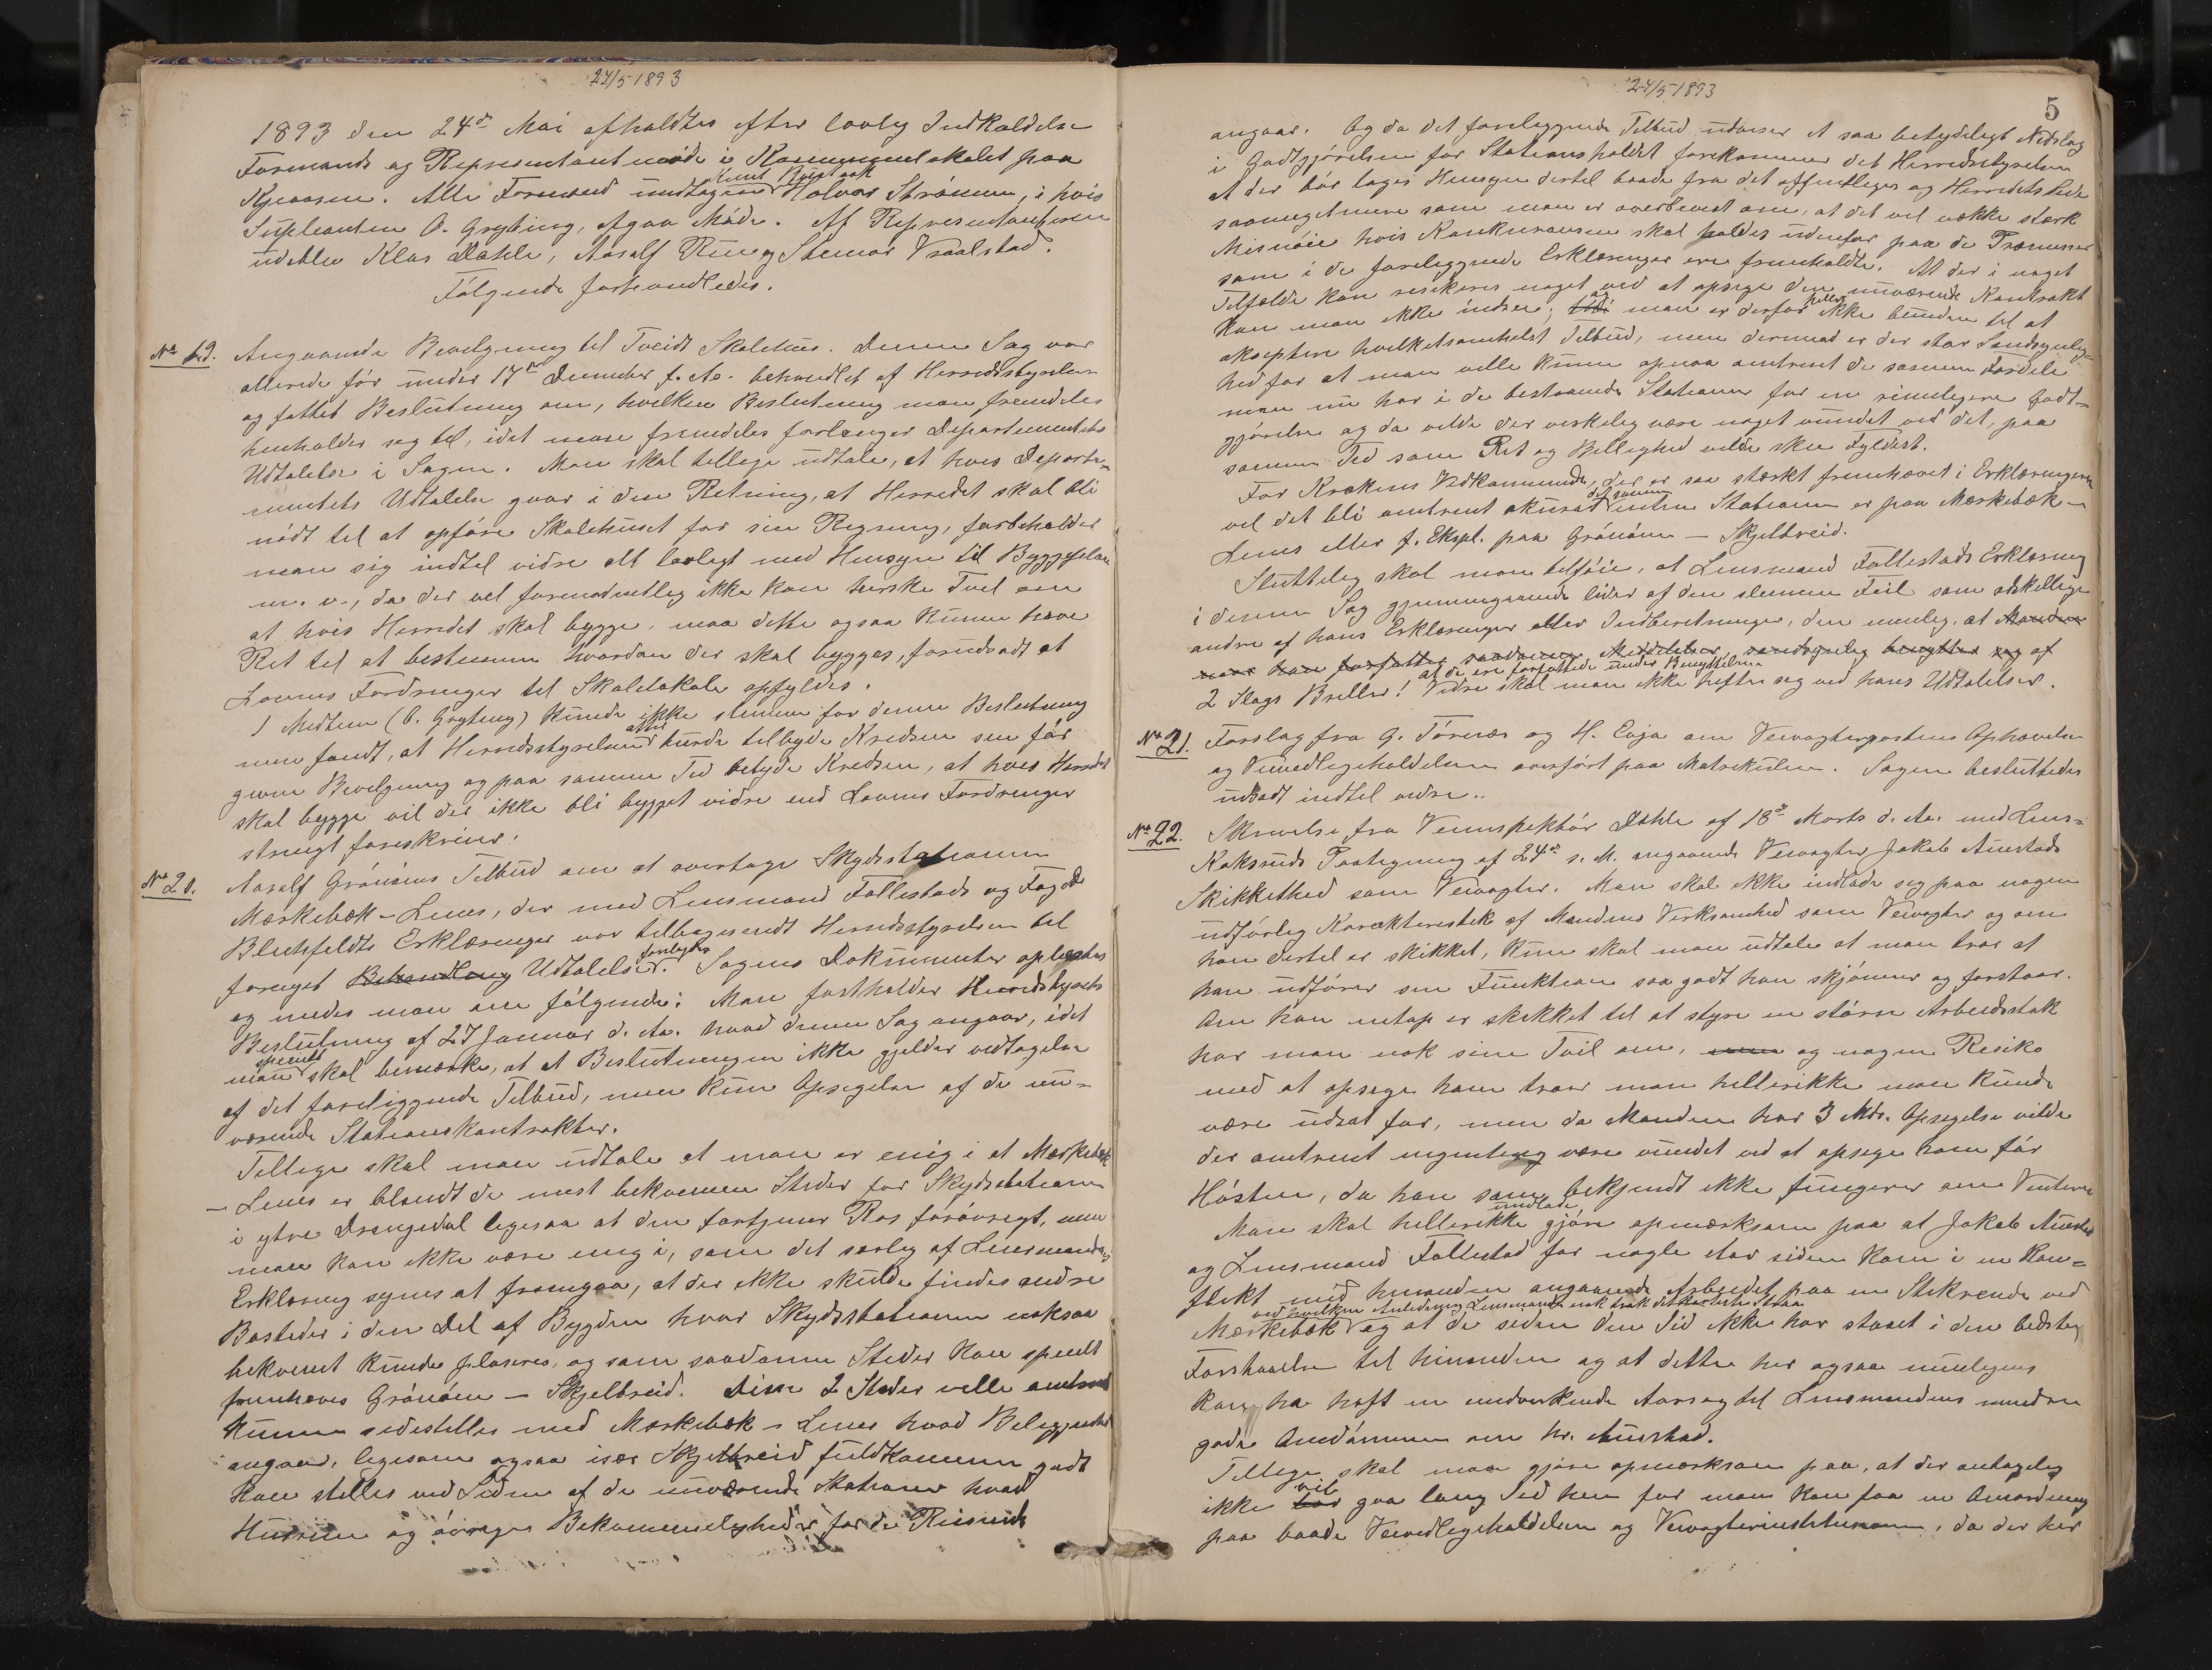 24/5 1893
1893 den 24de Mai afholdtes efter lovlig Indkaldelse
Formands og Representantmøde i Kommunelokalet paa
Kjeaasen. Alle Formænd undtagen Halvor Strømme, i hvis
Supleanten O. Grytning, Agaa Møde. Af Representanterne
udeblev Klas Dahle, Aasulf Ring Steinar Vraalstad.
Følgende forhandledes.
No 19. Angaaende Bevilgning til Tveidt Skolehus. Denne Sag var
allerede før under 17de December f. Aa. behandlet af Herredsstyrelsen
og fattet Beslutning om, hvilken Beslutning man fremdeles
henholder sig til, idet man fremdeles forlanger Departementets
Udtalelse i Sagen. Man skal tillige udtale, at hvis Departe-
mentets Udtalelse gaar i den Retning, at Herredet skal bli
nødt til at opføre Skolehuset for sin Regning, forbeholder
man sig indtil vidre alt lovligt med Hensyn til Byggeplan
m. v., da der vel formodentlig ikke kan herske Tvil om
at hvis Herredet skal bygge, maa dette ogsaa kunne have
Ret til at bestemme hvordan der skal bygges, forudsadt at
Lovens Fordringer til Skolelokale opfyldes.
1 Medlem (O. Grytning) kunde ikke stemme for denne Beslutning
men fandt, at Herredsstyrelsen atter burde tilbyde Kredsen sin før
givne Bevilgning og paa samme Tid betyde Kredsen, at hvis Herredet
skal bygge vil der ikke bli bygget vidre end Lovens Fordringer
strengt foreskriver.
No 20. Aasulf Grønåens Tilbud om at overtage Skydsstationen
Mærkebæk – Lenes, der med Lensmand Fallestads og Foged
Blechfeldts Erklæringer var tilbagesendt Herredsstyrelsen til
fornyet Behandling Udtalelse forelagdes. Sagens Dokumenter oplæstes
og enedes man om følgende: Man fastholder Herredsstyrets
Beslutning af 27 Januar d. Aa. hvad denne Sag angaar, idet
man specielt skal bemærke, at Beslutningen ikke gjelder vedtagelse
af det foreliggende Tilbud, men kun Opsigelse af de nu-
værende Stationskontrakter.
Tillige skal man udtale at man er enig i at Mærkebæk
– Lenes er blandt de mest bekvemme Steder for Skydsstation
i ytre Drangedal ligesaa at den fortjener Ros forøvrigt, men
man kan ikke være enig i, som det særlig af Lensmandens
Erklæring synes at fremgaa, at der ikke skulde findes andre
Bosteder i den Del af Bygden hvor Skydsstationen noksaa
bekvemt kunde plaseres, og som saadanne Steder kan specielt
fremhæves Grønåen – Skjelbreid. Disse 2 Steder ville omtrent
kunne sidestilles med Mærkebæk – Lenes hvad Beliggenhed
angaar, ligesom ogsaa især Skjelbreid fuldkommen godt
kan stilles ved Siden af de nuværende Stationer hvad
Husrum og øvrige Bekvemmeligheder for de Reisende
24/5 1893
5
angaar. Og da det foreliggende Tilbud udviser et saa betydeligt Nedslag
i Godtgjørelsen for Stationsholdet forekommer det Herredsstyrelsen
at der bør tages Hensyn dertil baade fra det offentliges og Herredets Side
saameget mere som man er overbevist om, at det vil vække sterk
Misnøie hvis Konkurransen skal holdes udenfor paa de Præmisser
som i de foreliggende Erklæringer ere fremholdte. At der i noget
Tilfælde kan resikeres noget ved at opsige den nuværende Kontrakt
kan man ikke indsee; og man er derfor heller ikke bunden til at
akseptere hvilketsomhelst Tilbud, men dermed er der stor Sandsynlig-
hed for at man ville kunne opnaa omtrent de samme Fordele
man nu har i de bestaaende Stationer for en rimeligere Godt-
gjørelse og da vilde der virkelig være noget vundet ved det, paa
samme Tid som Ret og Billighed vilde skee Fyldest.
For Krokens Vedkommende, der er saa stærkt fremhævet i Erklæringerne
vil det bli omtrent akurat det samme enten Stationen er paa Mærkebæk –
Lenes eller f. Ekspl. paa Grønåen – Skjelbreid.
Sluttelig skal man tilføie, at Lensmand Fallestads Erklæring
i denne Sag gjennemgaaende lider af den slemme Feil som adskillige
andre af hans Erklæringer eller Indberetninger, den nemlig, at Manden
naar han forfatter saadanne Meddelelser, sandsynlig benytter sig af
at de ere forfattede under Benyttelsen
2 Slags Briller! Vidre skal man ikke hefte sig ved hans Udtalelser.
No 21. Forslag fra G. Tørnæs og H. Eija om Veivogterpostens Ophævelse
og Veivedligeholdelsen overført paa Matrikulen. Sagen besluttedes
udsadt indtil vidre.
No 22. Skrivelse fra Veinspektør Dahle af 18de Marts d. Aa. med Lens.
Koksruds Paategning af 24de s. M. angaaende Veivogter Jakob Austads
Skikkethed som Veivogter. Man skal ikke indlade sig paa nogen
udførlig Karakteristik af Mandens Virksomhed som Veivogter og om
han dertil er skikket, kun skal man udtale at man tror at
han udfører sin Funktion saa godt han skjønner og forstaar.
Om han netop er skikket til at styre en større Arbeidsstok
har man nok sine Tvil om, og nogen Resiko
med at opsige ham tror man hellerikke man kunde
være udsat for, men da Manden har 3 Mdr. Opsigelse vilde
der omtrent ingenting være vundet ved at opsige ham før
Høsten, da han som bekjendt ikke fungerer om Vinteren
Man skal hellerikke undlade gjøre opmærksom paa at Jakob Austad
og Lensmand Fallestad for nogle Aar siden kom i en Kon-
flikt med hinanden angaaende Arbeidet paa en Stikrende ved
Mærkebæk ved hvilken Anledning Lensmanden nok trak det korteste Straa og at de siden den Tid ikke har staaet i den bedste
Forstaaelse til hinanden og at dette her ogsaa muligens
kan ha haft en medvirkende Aarsag til Lensmandens mindre
gode Omdømme om hr. Austad.
Tillige skal man gjøre opmærksom paa, at der antagelig
ikke vil gaa lang Tid hen før man kan faa en Omordning
paa baade Veivedligeholdelsen og Veivogterinstitutionen, da der her